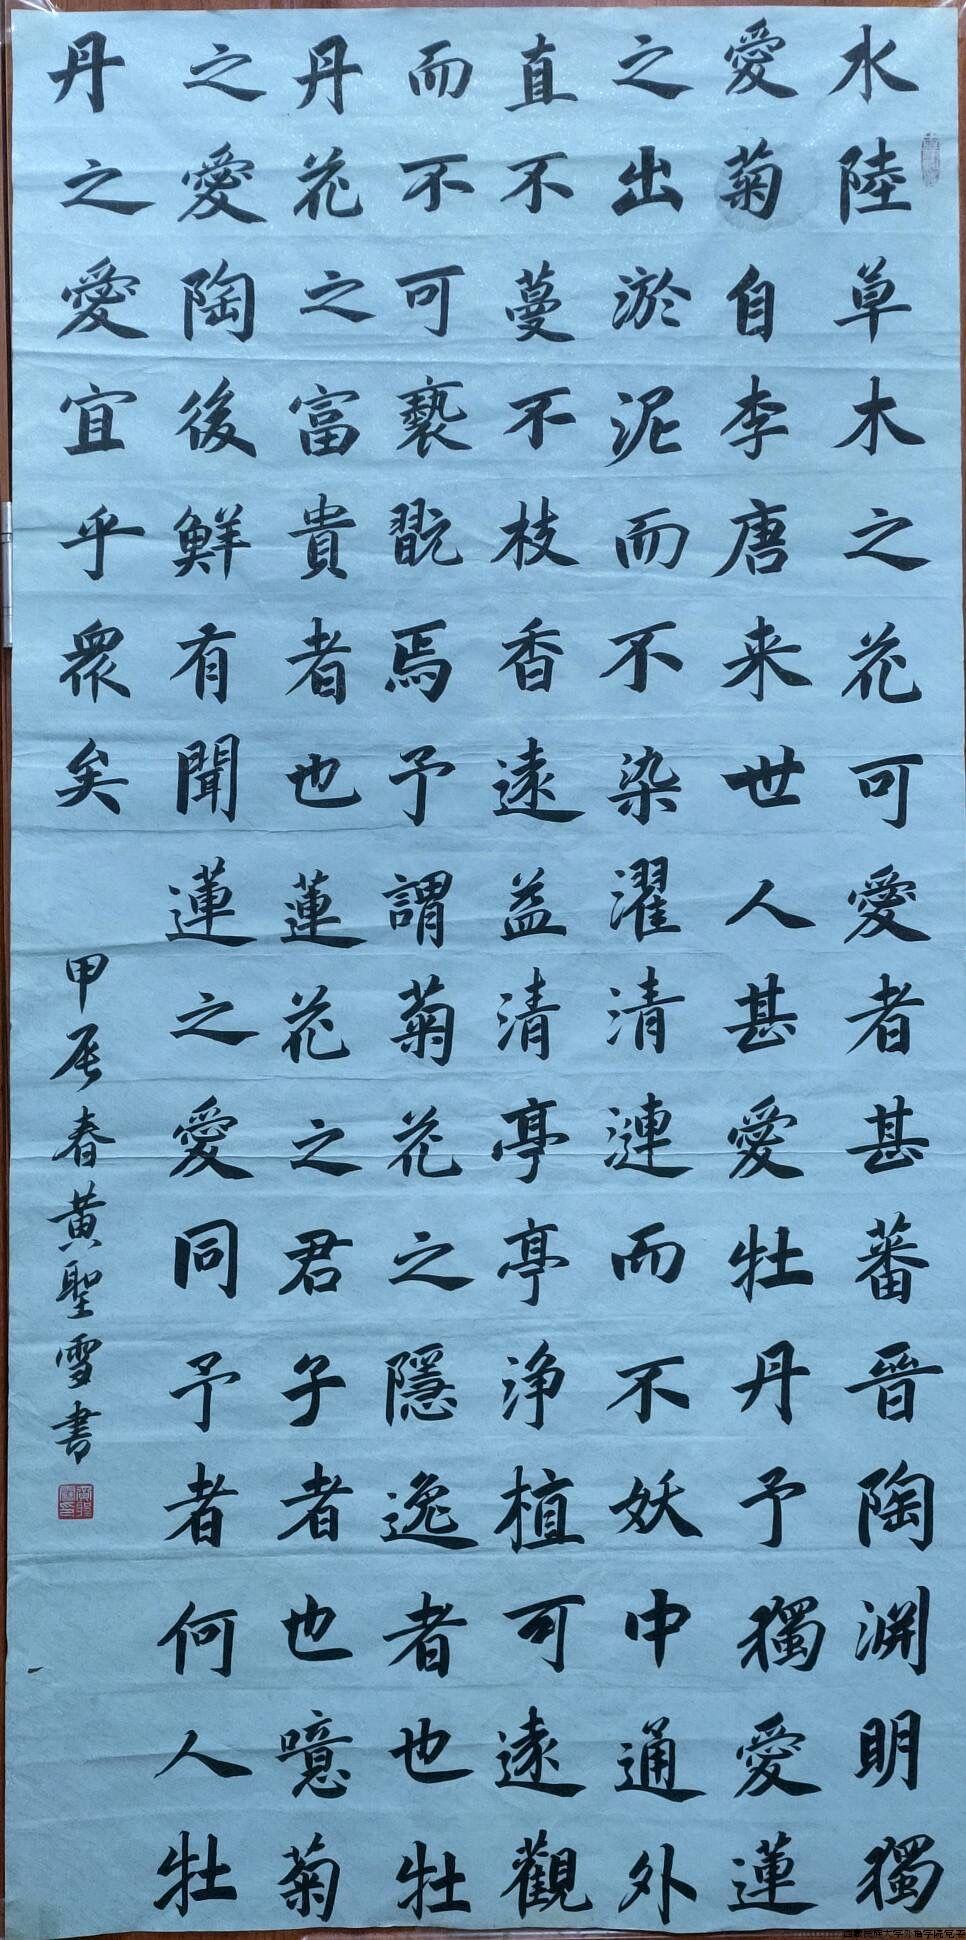 水陸草木之花可愛者甚蕃晉陶淵明獨
愛菊自李唐来世人甚愛牡丹予獨愛蓮
之出淤泥而不染濯清漣而不妖中通外
直不蔓不枝香遠益清亭亭浄植可遠觀
而不可褻翫焉予謂菊花之隱逸者也牡
丹花之富貴者也蓮花之君子者也噫菊
之愛陶後鮮有聞蓮之愛同予者何人牡
丹之愛宜乎眾矣
甲辰春黄聖雪書